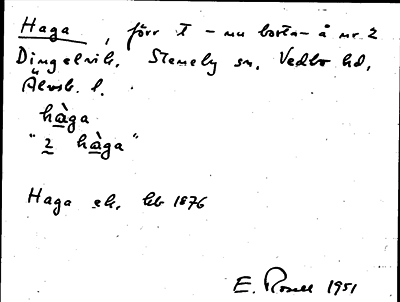 Haga, förr t – nu borta – å nr 2
Dingelvik, Steneby sn, Vedbo hd,
Älvsb. l.
hàga
"2 hàga"
Haga eh. hb 1876
E. Rosell 1951